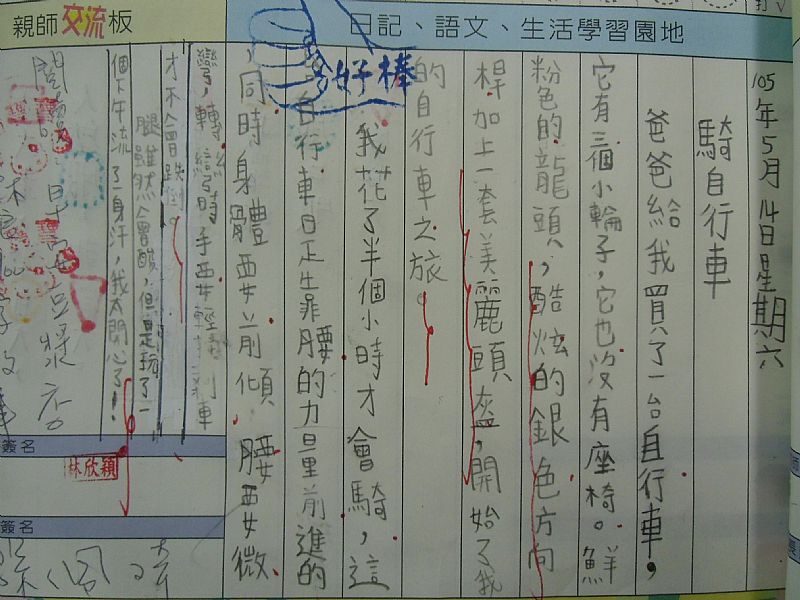 親師交流板
日記、語文、生活學習園地
多好棒
105年5月14日星期六
騎自行車
爸爸給我買了一台自行車,
它有三個小輪子,它也沒有座椅。鮮
粉色的龍頭,酷炫的銀色方向
桿加上一套美麗頭盔,開始了我
的自行車之旅。
我花了半個小時才會騎,這
自行車是靠腰的力量前進的
,同時身體要前傾腰要微
彎,轉彎時手要輕 剎車
才不會跌倒。
腿雖然會酸,但是玩了一
個下午流了一身汗,我太開心了!
簽名
林欣穎
簽名